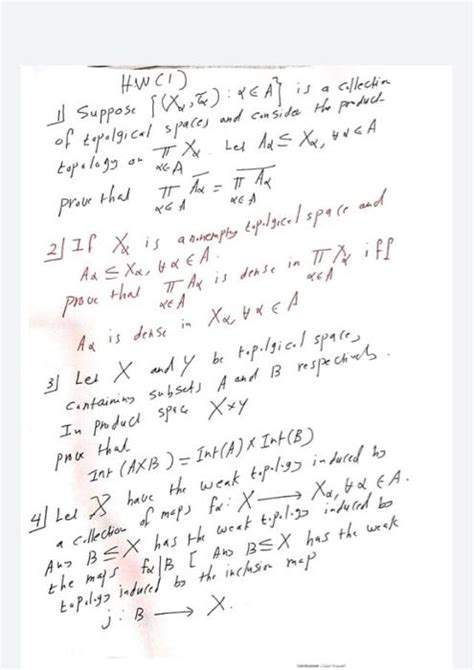 HW(1)
1) Suppose {(Xα, τα) : α ∈ A} is a collection
of topolgical spaces and consider the product
topology on ∏ Xα. Let Aα ⊆ Xα, ∀ α ∈ A
α∈A
prove that ∏ Āα = \overline{∏ Aα}
α∈A α∈A
2) If Xα is a nonempty topolgicel space and
Aα ⊆ Xα, ∀ α ∈ A.
prove that ∏ Aα is dense in ∏ Xα iff
α∈A α∈A
Aα is dense in Xα, ∀ α ∈ A
3) Let X and Y be topolgicel spaces
containing subsets A and B respectively.
In product space X×Y
prove that
Int(A×B) = Int(A) × Int(B)
4) Let X have the weak topology induced by
a collection of maps fα : X → Xα, ∀ α ∈ A.
And B ⊆ X has the weak topology induced by
the maps fα|B [ And B ⊆ X has the weak
topology induced by the inclusion map
j : B → X.